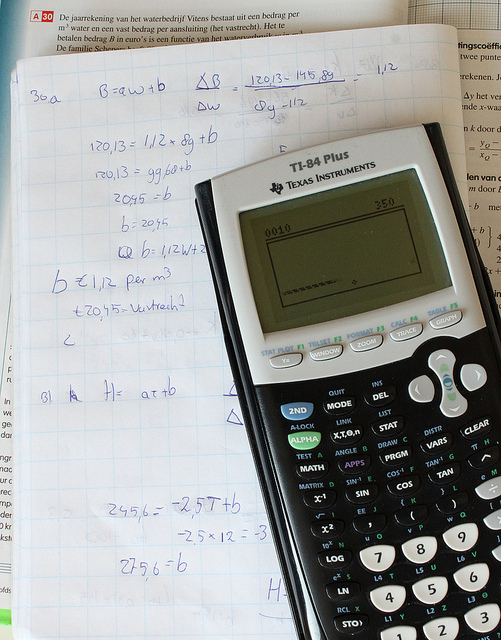 A 30 De jaarrekening van het waterbedrijf Vitens bestaat uit een bedrag per
m³ water en een vast bedrag per aansluiting (het vastrecht). Het te
betalen bedrag B in euro's is een functie van het waterverbruik
De familie
tingscoëffi
twee punte
rekenen.
Δy het ver
nde x-waa
n k door d
len van d
m door
30a B = aw + b ΔB/Δw = 120,13 - 145,89 / 89 - 112 = 1,12
120,13 = 1,12 × 89 + b
120,13 = 99,68 + b
20,45 = b
b = 20,45
b = 1,12w + 2
b € 1,12 per m³
€ 20,45 = Vastrecht
31 H = aT + b
245,6 = -2,5T + b
-2,5 × 12 = -3
275,6 = b
H
TI-84 Plus
TEXAS INSTRUMENTS
0010 350
STAT PLOT F1 TBLSET F2 FORMAT F3 CALC F4 TABLE F5
Y= WINDOW ZOOM TRACE GRAPH
QUIT INS
2ND MODE DEL
A-LOCK LINK LIST
ALPHA X,T,Θ,n STAT
TEST A ANGLE B DRAW C DISTR
MATH APPS PRGM VARS CLEAR
MATRIX D SIN⁻¹ E COS⁻¹ F TAN⁻¹ G π H
x⁻¹ SIN COS TAN ^
√ I EE J { K } L e M
x² , ( )
10ˣ N u O v P w Q
LOG 7 8 9
eˣ S L4 T L5 U L6 V
LN 4 5 6
RCL X L1 Y L2 Z L3 θ
STO› 1 2 3